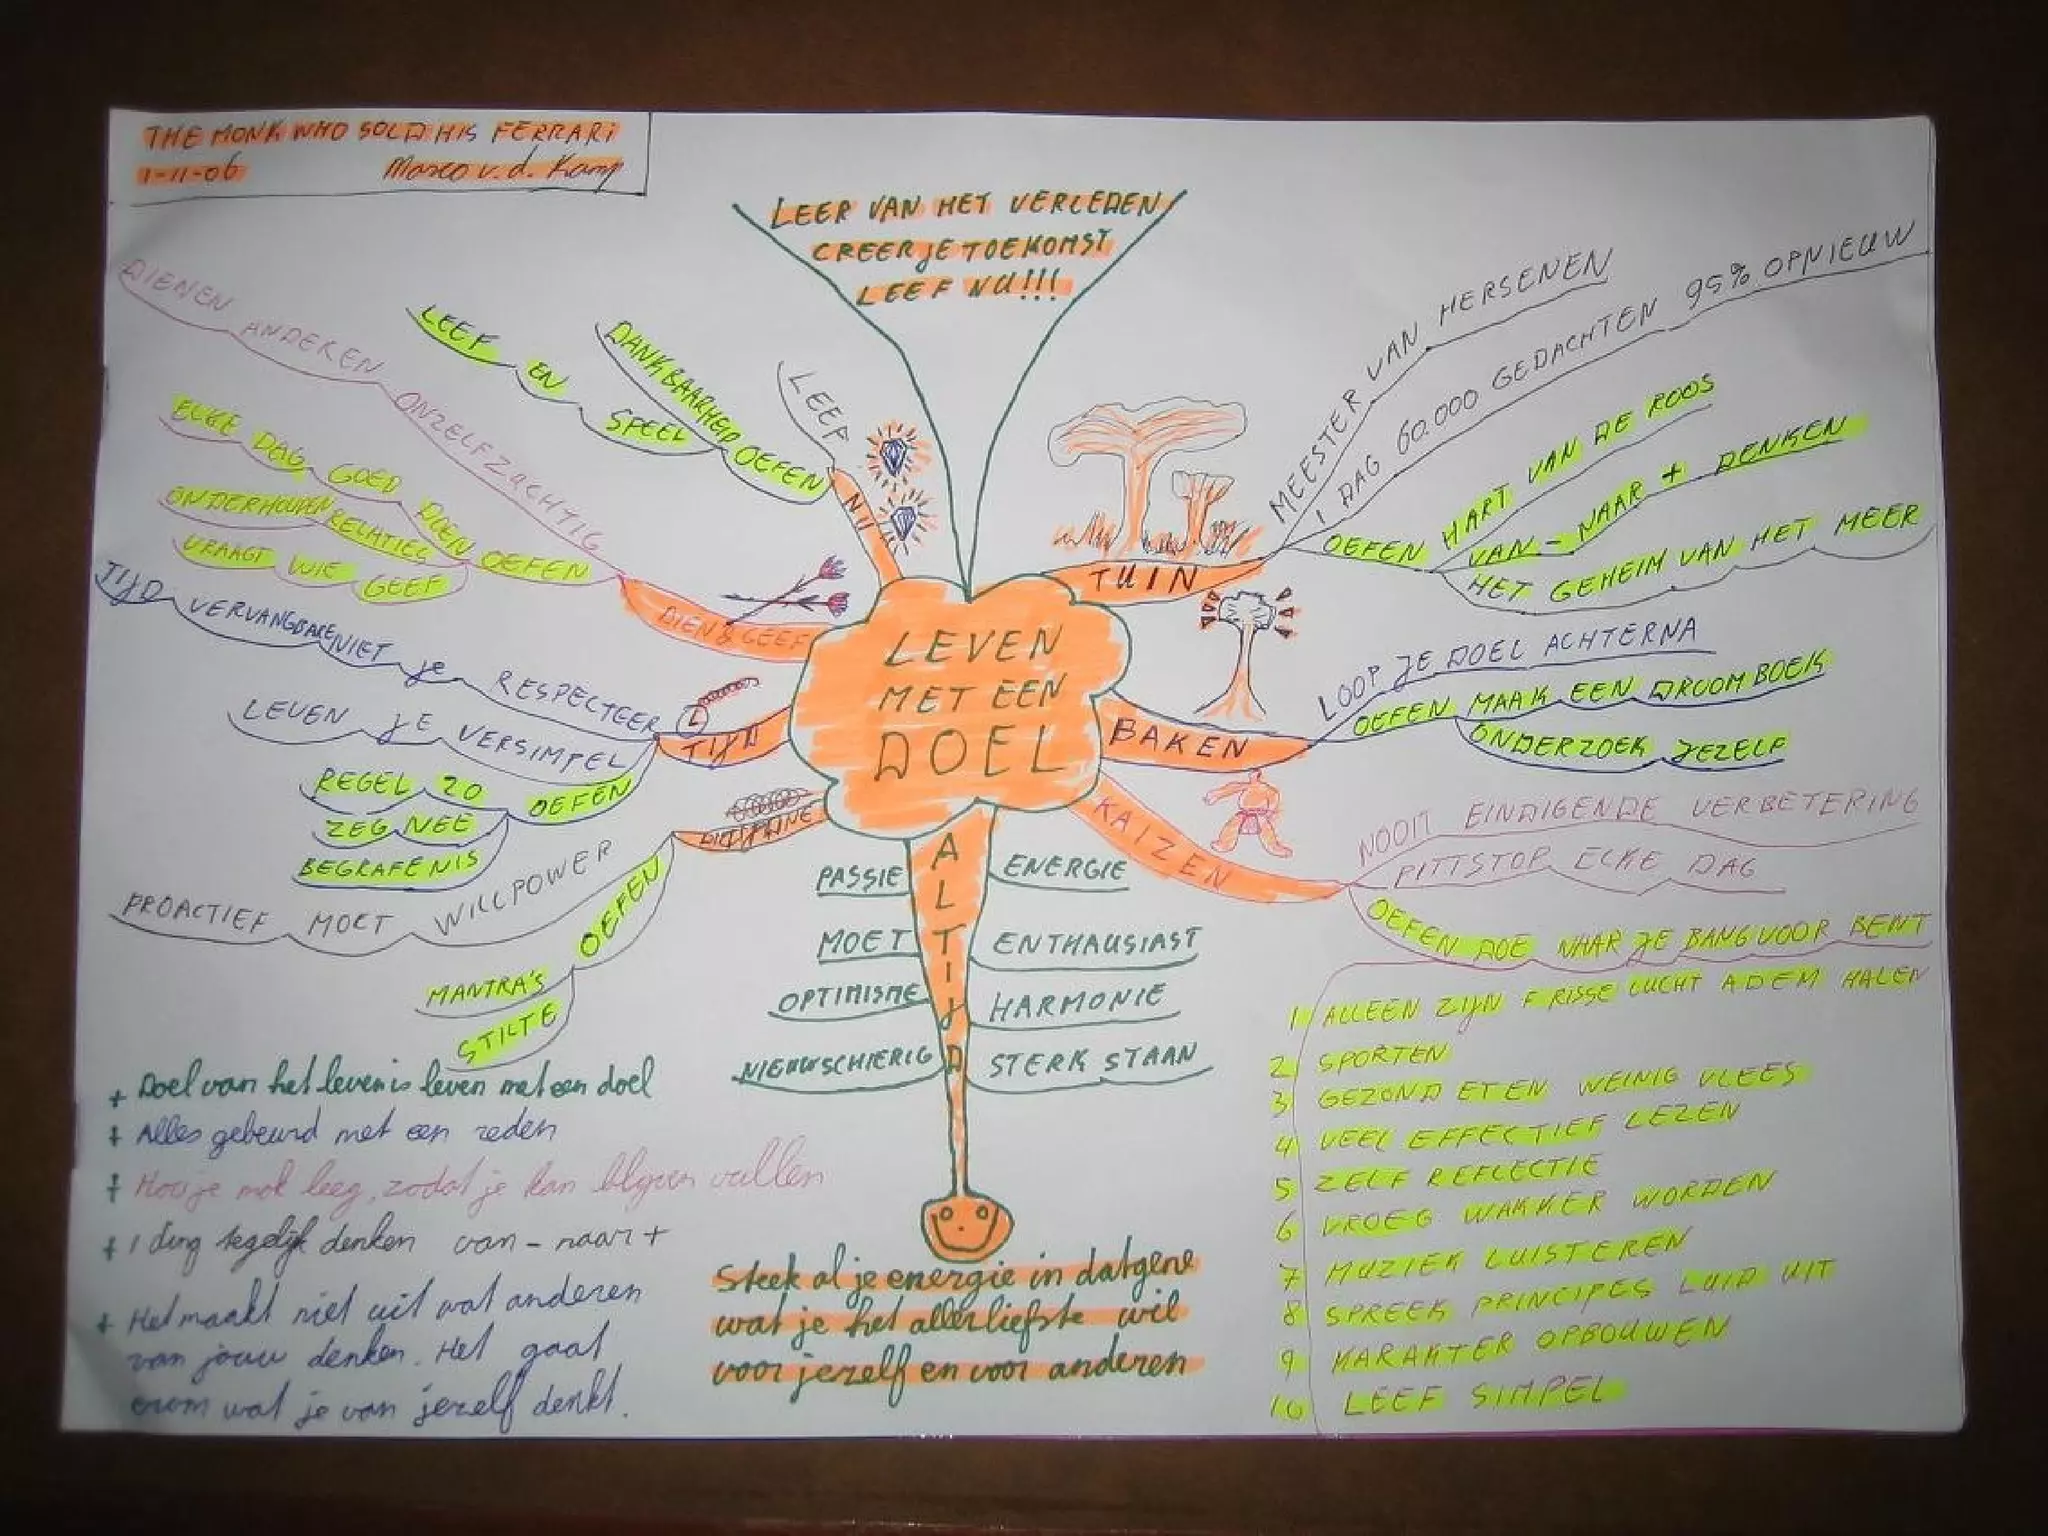 THE MONK WHO SOLD HIS FERRARI
1-11-06 Marco v.d. Kamp
LEER VAN HET VERLEDEN
CREER JE TOEKOMST
LEEF NU!!!
LEVEN
MET EEN
DOEL
NU
LEEF
DANKBAARHEID OEFEN
LEEF EN SPEEL
DIEN & GEEF
DIENEN ANDEREN ONZELFZACHTIG
ELKE DAG GOED DOEN OEFEN
ONDERHOUVEN RELATIES
VRAAGT WIE GEEF
TIJD
TIJD VERVANGBARE NIET JE RESPECTEER
LEVEN JE VERSIMPEL
OEFEN
REGEL 20
ZEG NEE
BEGRAFENIS
DISCIPLINE
PROACTIEF MOET WILLPOWER
OEFEN
MANTRA'S
STILTE
TUIN
MEESTER VAN HERSENEN
1 DAG 60.000 GEDACHTEN 95% OPNIEUW
OEFEN HART VAN DE ROOS
VAN - NAAR + DENKEN
HET GEHEIM VAN HET MEER
BAKEN
LOOP JE DOEL ACHTERNA
OEFEN MAAK EEN DROOMBOEK
ONDERZOEK JEZELF
KAIZEN
NOOIT EINDIGENDE VERBETERING
PITTSTOP ELKE DAG
OEFEN DOE NAAR JE BANG VOOR BENT
1 ALLEEN ZIJN FRISSE LUCHT ADEM HALEN
2 SPORTEN
3 GEZOND ETEN WEINIG VLEES
4 VEEL EFFECTIEF LEZEN
5 ZELF REFLECTIE
6 VROEG WAKKER WORDEN
7 MUZIEK LUISTEREN
8 SPREEK PRINCIPES LUID UIT
9 KARAKTER OPBOUWEN
10 LEEF SIMPEL
ALTIJD
PASSIE
MOET
OPTIMISME
NIEUWSCHIERIG
ENERGIE
ENTHAUSIAST
HARMONIE
STERK STAAN
+ Doel van het leven is leven met een doel
+ Alles gebeurd met een reden
+ Hou je mok leeg, zodat je kan blijven vullen
+ 1 ding tegelijk denken van - naar +
+ Het maakt niet uit wat anderen
van jouw denken. Het gaat
erom wat je van jezelf denkt.
Steek al je energie in datgene
wat je het allerliefste wil
voor jezelf en voor anderen